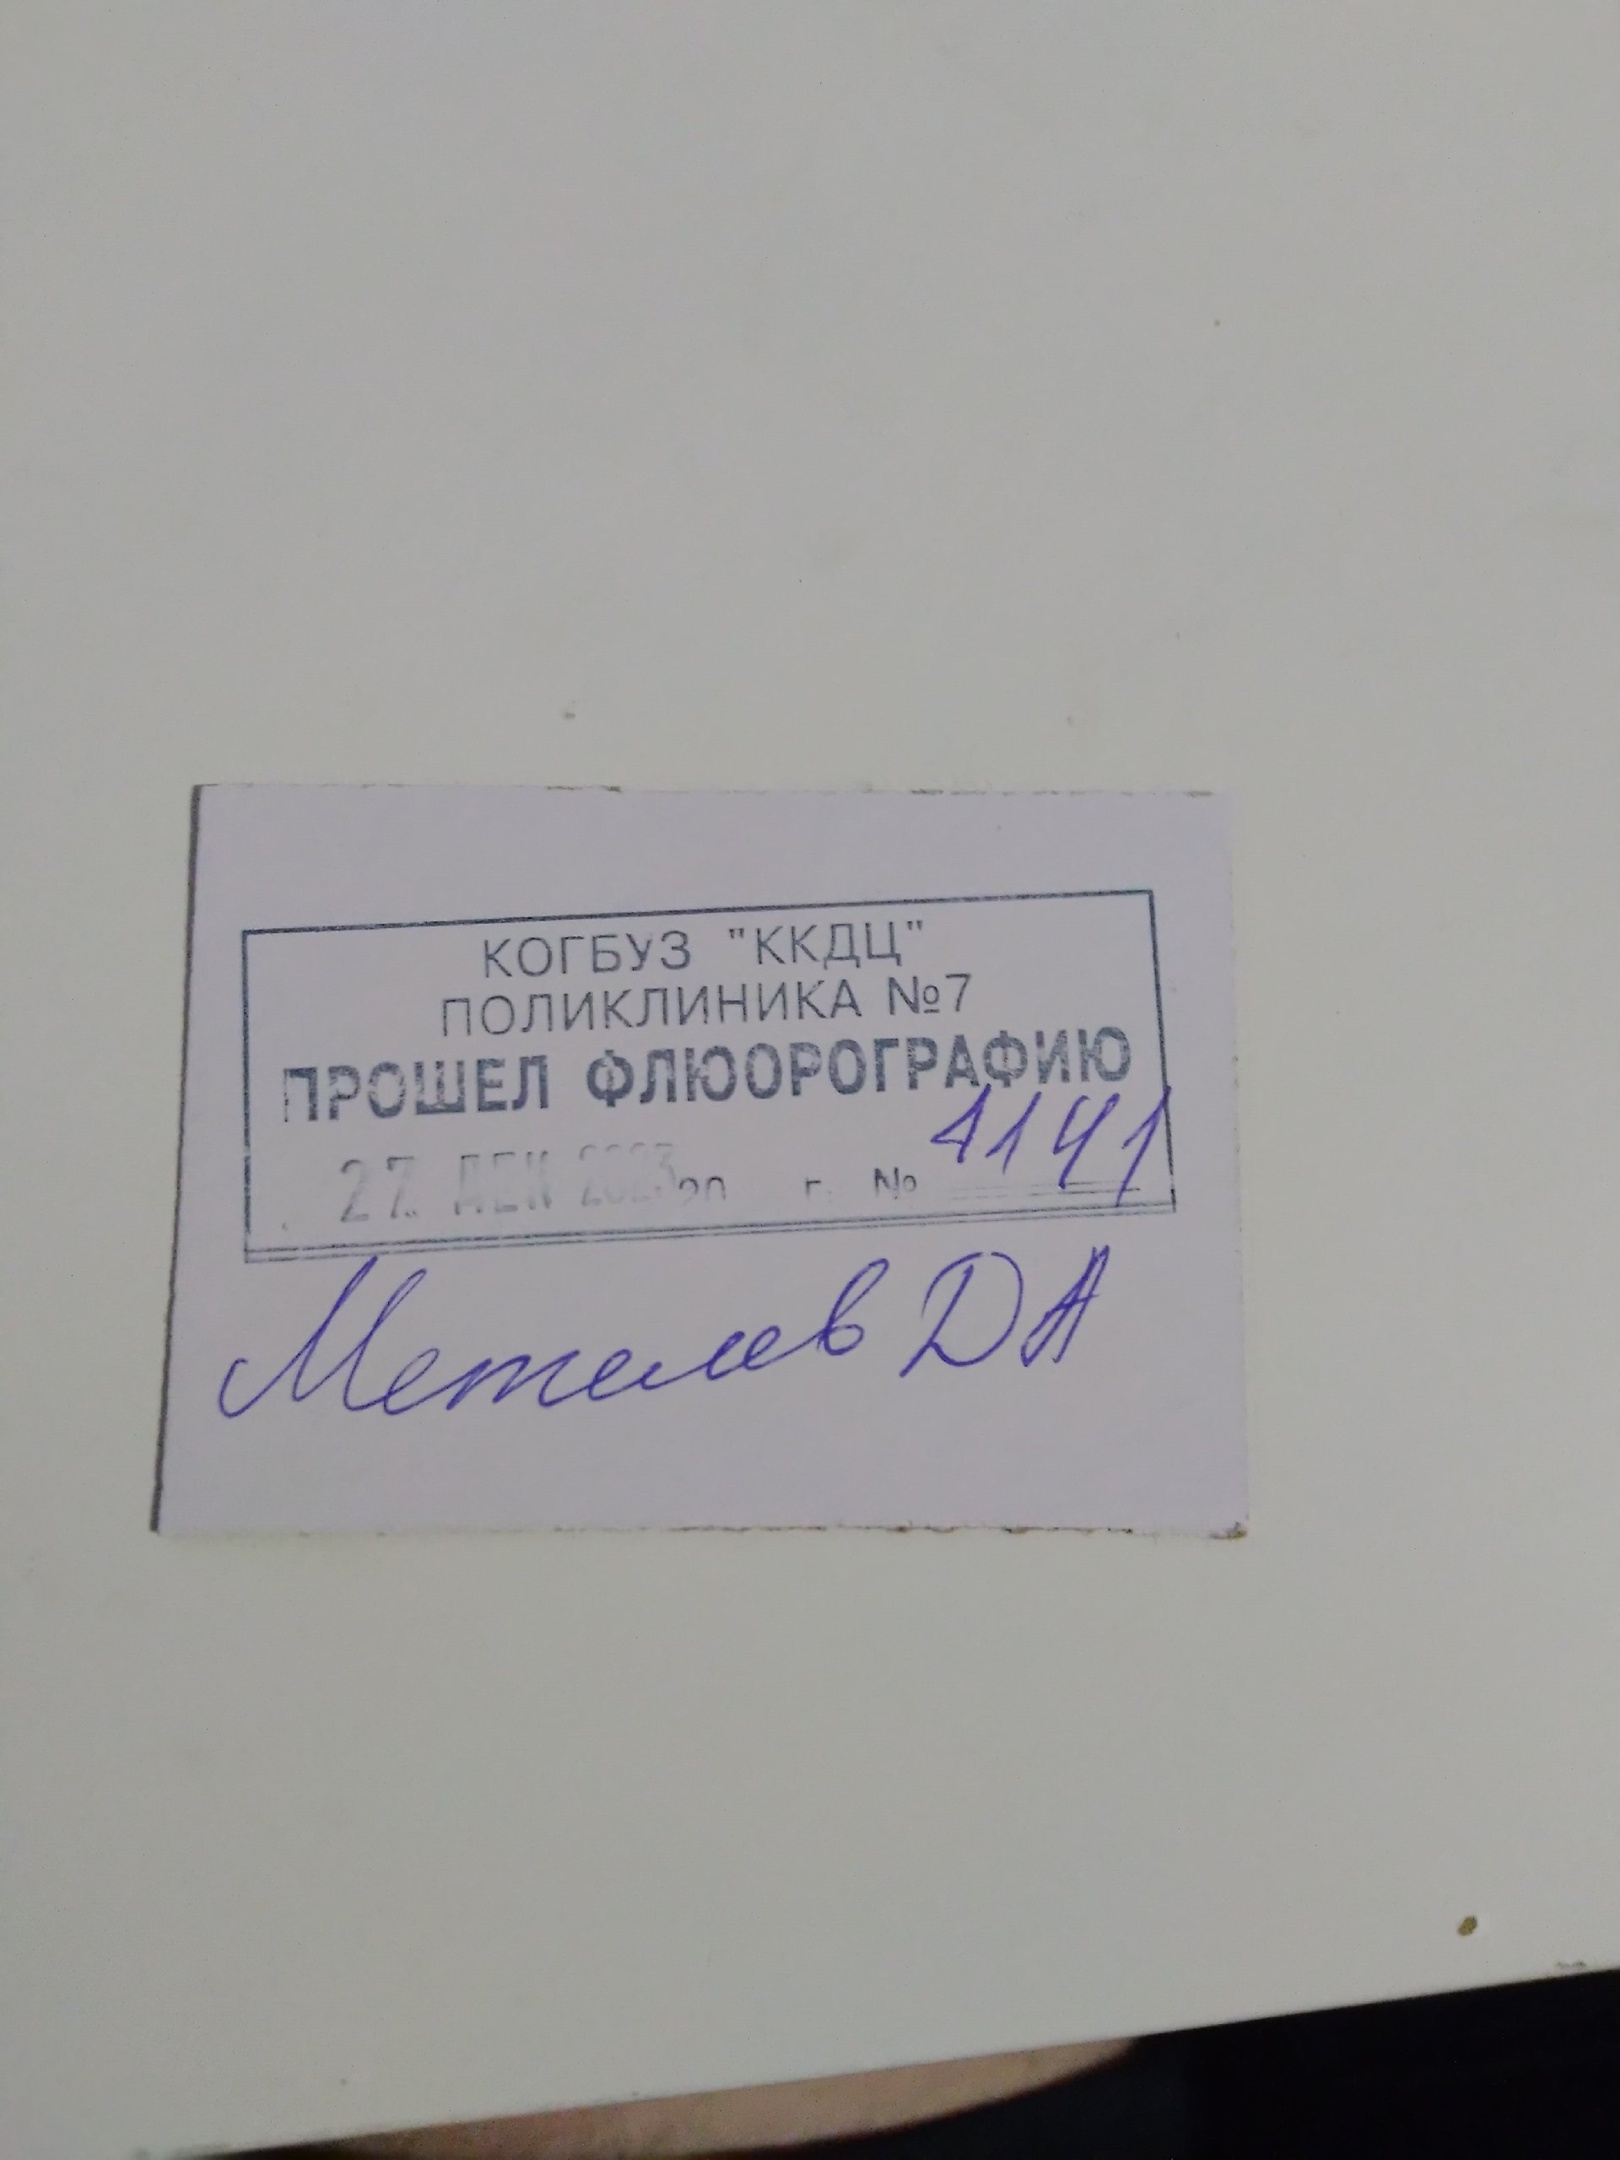 КОГБУЗ "ККДЦ"
ПОЛИКЛИНИКА №7
ПРОШЕЛ ФЛЮОРОГРАФИЮ
27. ДЕК 2023 20 г. № 1141
Метелев ДА